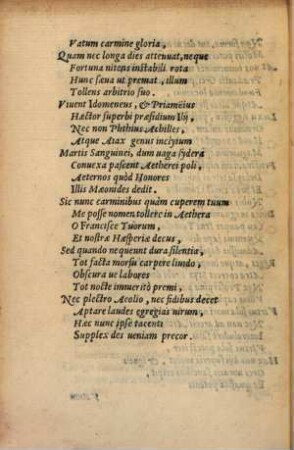 Vatum carmine gloria,
Quam nec longa dies attenuat, neque
Fortuna nitens instabili rota
Hunc sæua ut premat, illum
Tollens arbitrio suo.
Viuent Idomeneus, & Priameïus
Hæctor superbi præsidium Ilij,
Nec non Phthius Achilles,
Atque Aiax genus incÿtum
Martis Sanguines, dum uaga sydera
Conuexa pascent Aetherei poli,
Aeternos quòd Honores
Illis Mæonides dedit.
Sic nunc carminibus quàm cuperem tuum
Me posse nomen tollere in Aethera
O Francisce Tuorum,
Et nostræ Hæsperiæ decus,
Sed quando nequeunt dura silentia,
Tot facta morsu carpere liuido,
Obscura ut labores
Tot nocte immeritò premi,
Nec plectro Aeolio, nec fidibus decet
Aptare laudes egregias uirum,
Hæc nunc ipse tacenti
Supplex des ueniam precor.